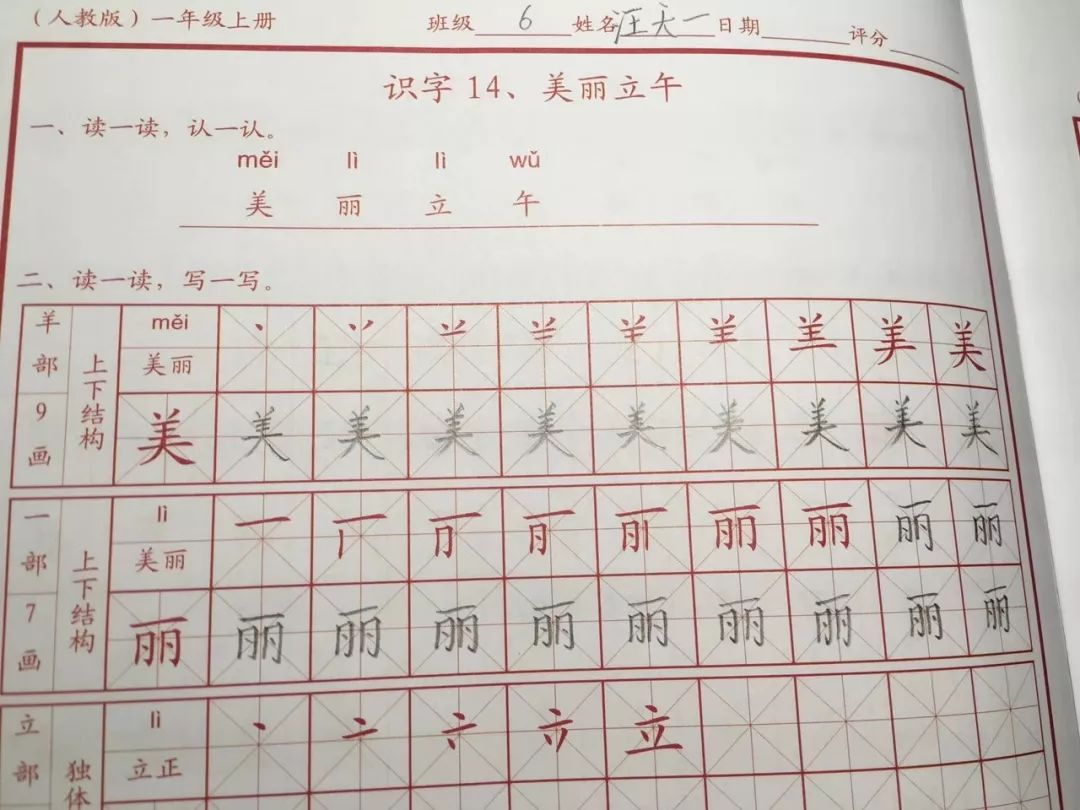 （人教版）一年级上册 班级 6 姓名 汪天一 日期 评分
识字 14、美丽立午
一、读一读，认一认。
měi lì lì wǔ
美 丽 立 午
二、读一读，写一写。
羊部9画
上下结构
měi 美
美丽
美 美 美 美 美 美 美 美 美 美
一部7画
上下结构
lì 一 丽 丽 丽
美丽
丽 丽 丽 丽 丽 丽 丽 丽 丽 丽
立部
独体
lì 立
立正